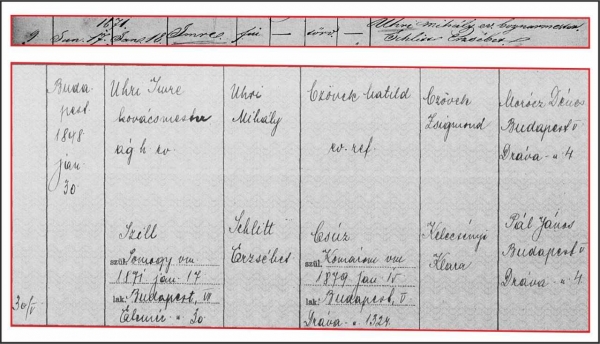 1871.
9 Jan. 17. Jan. 18. Imre fiu — törv. — Uhri Mihály ev. bognármester
Schlitt Erzsébet.
Buda
pest
1848
jan.
30.
Uhri Imre
kovácsmester
ág h ev.
Uhri
Mihály
Czövek Matild
ev. ref.
Czövek
Zsigmond
Morócz Dénes
Budapest V
Dráva u 4
30/V
Szill
szül. Somogy vm
1871 jan. 17
lak. Budapest, VII
Elemér u. 30.
Schlitt
Erzsébet
Csúz
szül. Komárom vm
1879 jan. 15
lak. Budapest, V.
Dráva u. 1324.
Kelecsényi
Klára
Pál János
Budapest V
Dráva u. 4